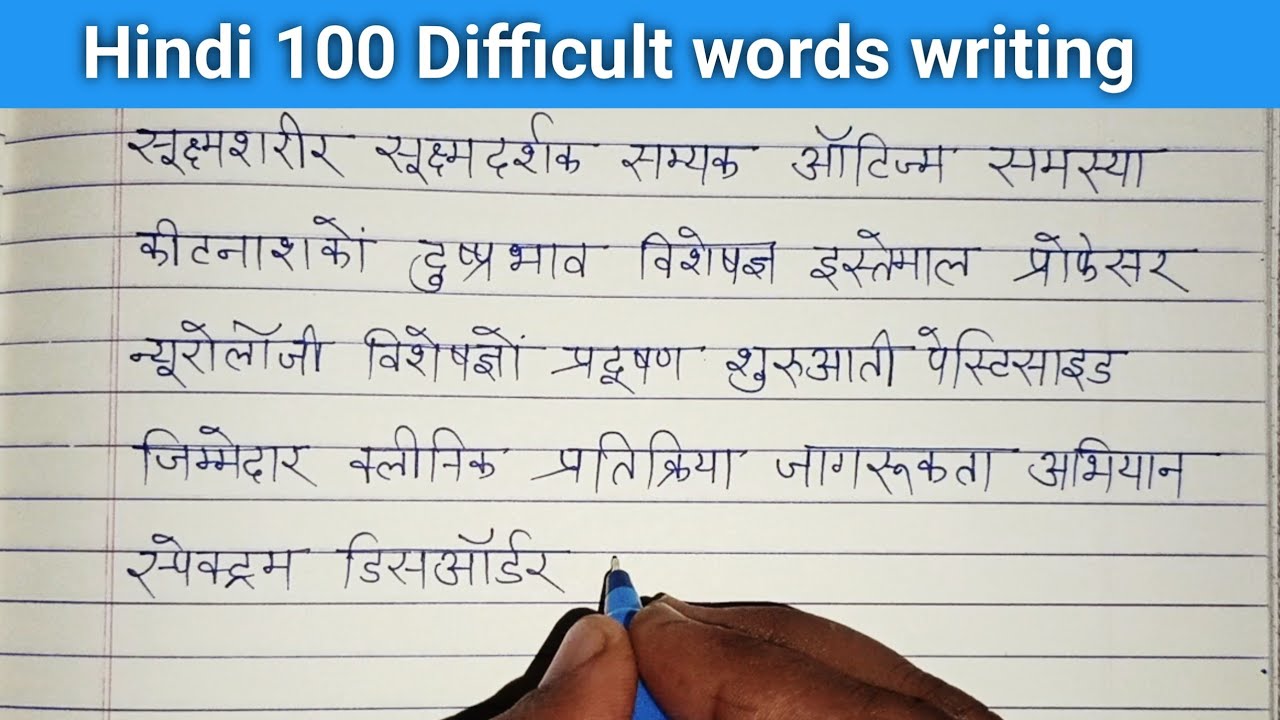 Hindi 100 Difficult words writing
सूक्ष्मशरीर सूक्ष्मदर्शक सम्यक ऑटिज्म समस्या
कीटनाशकों दुष्प्रभाव विशेषज्ञ इस्तेमाल प्रोफेसर
न्यूरोलॉजी विशेषज्ञों प्रदूषण शुरुआती पेस्टिसाइड
जिम्मेदार क्लीनिक प्रतिक्रिया जागरूकता अभियान
स्पेक्ट्रम डिसऑर्डर